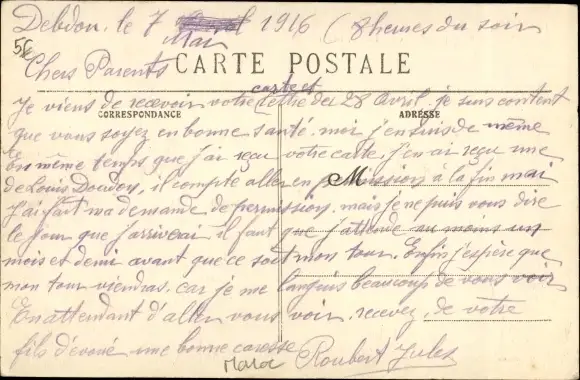 Debdou, le 7 Avril 1916 (8 heures du soir
56
Mai
Chers Parents
CARTE POSTALE
carte et
Je viens de recevoir votre lettre du 28 Avril, je suis content
CORRESPONDANCE
ADRESSE
que vous soyez en bonne santé, moi j'en suis de même
en même temps que j'ai reçu votre carte, j'en ai reçu une
de Louis Doudon, il compte aller en permission à la fin mai
J'ai fait ma demande de permission, mais je ne puis vous dire
le jour que j'arriverai il faut que j'attende au moins un
mois et demi avant que ce soit mon tour. Enfin j'espère que
mon tour viendras, car je me languis beaucoup de vous voir
En attendant d'aller vous voir, recevez, de votre
fils dévoué une bonne caresse
Maroc
Roubert Jules